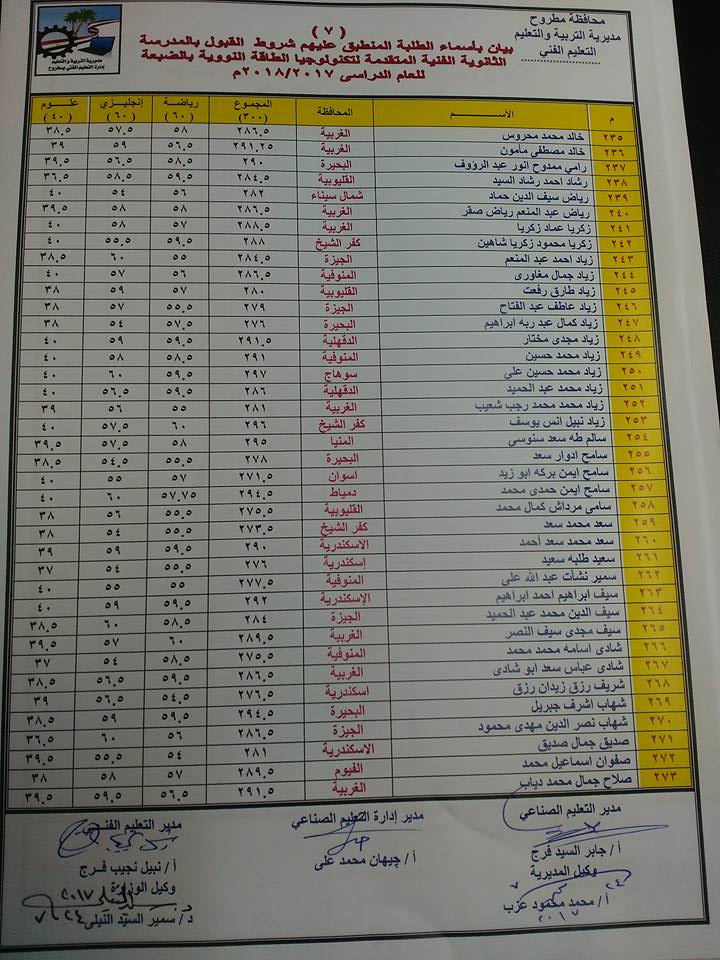 محافظة مطروح
مديرية التربية والتعليم
التعليم الفني
(٧)
بيان بأسماء الطلبة المنطبق عليهم شروط القبول بالمدرسة
الثانوية الفنية المتقدمة لتكنولوجيا الطاقة النووية بالضبعة
للعام الدراسى ٢٠١٨/٢٠١٧م
مديرية التربية والتعليم
إدارة التعليم الفني بمطروح
م الأســـم المحافظة المجموع (٣٠٠) رياضة (٦٠) إنجليزي (٦٠) علوم (٤٠)
٢٣٥ خالد محمد محروس الغربية ٢٨٦.٥ ٥٨ ٥٧.٥ ٣٨.٥
٢٣٦ خالد مصطفى مأمون الغربية ٢٩١.٢٥ ٥٦.٥ ٥٩ ٣٩
٢٣٧ رامي ممدوح انور عبد الرؤوف البحيرة ٢٩٠ ٥٨.٥ ٥٦.٥ ٣٩.٥
٢٣٨ رشاد احمد رشاد السيد القليوبية ٢٨٤.٥ ٥٩.٥ ٥٨.٥ ٣٦.٥
٢٣٩ رياض سيف الدين حماد شمال سيناء ٢٨٢ ٥٦ ٥٤ ٤٠
٢٤٠ رياض عبد المنعم رياض صقر الغربية ٢٨٦.٥ ٥٨ ٥٨ ٣٩.٥
٢٤١ زكريا عماد زكريا الغربية ٢٨٨.٥ ٥٧ ٥٨ ٤٠
٢٤٢ زكريا محمود زكريا شاهين كفر الشيخ ٢٨٨ ٥٩.٥ ٥٥.٥ ٤٠
٢٤٣ زياد احمد عبد المنعم الجيزة ٢٨٤.٥ ٥٥ ٦٠ ٣٨.٥
٢٤٤ زياد جمال مغاورى المنوفية ٢٨٦.٥ ٥٦ ٥٧ ٤٠
٢٤٥ زياد طارق رفعت القليوبية ٢٨٠ ٥٧ ٥٩ ٣٨
٢٤٦ زياد عاطف عبد الفتاح الجيزة ٢٧٩ ٥٥.٥ ٥٧ ٣٨
٢٤٧ زياد كمال عبد ربه ابراهيم البحيرة ٢٧٦ ٥٧.٥ ٥٤ ٣٨
٢٤٨ زياد مجدى مختار الدقهلية ٢٩١.٥ ٥٩.٥ ٥٩ ٤٠
٢٤٩ زياد محمد حسين المنوفية ٢٩١ ٥٨.٥ ٥٨ ٤٠
٢٥٠ زياد محمد حسين على سوهاج ٢٩٧ ٥٩.٥ ٦٠ ٤٠
٢٥١ زياد محمد عبد الحميد الدقهلية ٢٨٦ ٥٩.٥ ٥٦.٥ ٤٠
٢٥٢ زياد محمد محمد رجب شعيب الغربية ٢٨١ ٥٥ ٥٦ ٣٩
٢٥٣ زياد نبيل انس يوسف كفر الشيخ ٢٩٦ ٦٠ ٥٧.٥ ٤٠
٢٥٤ سالم طه سعد سنوسى المنيا ٢٩٥ ٥٨ ٥٧.٥ ٣٩.٥
٢٥٥ سامح ادوار سعد البحيرة ٢٧٨ ٥٥.٥ ٥٤.٥ ٣٨.٥
٢٥٦ سامح ايمن بركه ابو زيد اسوان ٢٧١.٥ ٥٧ ٥٥ ٤٠
٢٥٧ سامح ايمن حمدى محمد دمياط ٢٩٤.٥ ٥٧.٧٥ ٦٠ ٤٠
٢٥٨ سامى مرداش كمال محمد القليوبية ٢٧٥.٥ ٥٥.٥ ٥٦ ٣٨
٢٥٩ سعد محمد سعد كفر الشيخ ٢٧٣.٥ ٥٥.٥ ٥٤ ٣٨
٢٦٠ سعد محمد سعد أحمد الاسكندرية ٢٩٠ ٥٩.٥ ٥٩ ٣٩
٢٦١ سعيد طلبه سعيد إسكندرية ٢٧٦ ٥٥.٥ ٥٤ ٣٧
٢٦٢ سمير نشأت عبد الله على المنوفية ٢٧٧.٥ ٥٥ ٥٥ ٤٠
٢٦٣ سيف ابراهيم احمد ابراهيم الإسكندرية ٢٩٢ ٥٩.٥ ٥٩ ٤٠
٢٦٤ سيف الدين محمد عبد الحميد الجيزة ٢٨٤ ٥٨.٥ ٦٠ ٣٨.٥
٢٦٥ سيف مجدى سيف النصر الغربية ٢٨٩.٥ ٦٠ ٥٧ ٣٩.٥
٢٦٦ شادى اسامه محمد محمد المنوفية ٢٧٥.٥ ٥٨.٥ ٥٤ ٣٧
٢٦٧ شادى عباس سعد ابو شادى الغربية ٢٨٦.٥ ٥٩.٥ ٥٦.٥ ٣٨.٥
٢٦٨ شريف رزق زيدان رزق اسكندرية ٢٧٦.٥ ٥٤.٥ ٥٦.٥ ٣٩
٢٦٩ شهاب اشرف جبريل البحيرة ٢٩٤.٥ ٥٩.٥ ٥٩ ٣٨.٥
٢٧٠ شهاب نصر الدين مهدى محمود الجيزة ٢٨٦.٥ ٥٦ ٦٠ ٣٦.٥
٢٧١ صديق جمال صديق الاسكندرية ٢٨١ ٥٤ ٥٥.٥ ٣٩.٥
٢٧٢ صفوان اسماعيل محمد الفيوم ٢٨٩.٥ ٥٧ ٥٨ ٣٨
٢٧٣ صلاح جمال محمد دياب الغربية ٢٩١.٥ ٥٦.٥ ٥٩.٥ ٣٩.٥
مدير التعليم الصناعي مدير إدارة التعليم الصناعي مدير التعليم الفنـي
أ/ جابر السيد فرج أ/ جيهان محمد على أ/ نبيل نجيب فـرج
وكيل المديرية وكيل الوزارة
أ/ محمد محمود عزب د/ سمير السيد النيلى